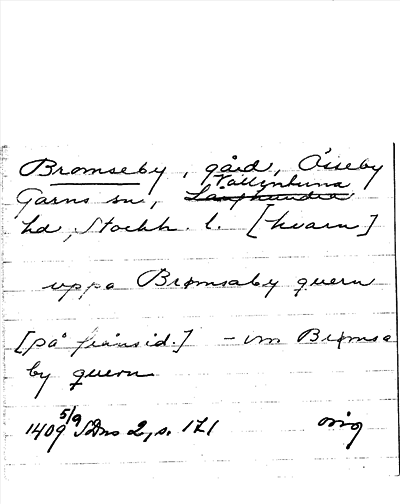 Brømseby, gård, Össeby
Garns sn, Vallentuna
hd, Stockh. l. [kvarn]
uppa Brømsaby quern
[på frånsid.] - vm Brømsa
by quern
1409 5/9 SDns 2, s. 171 orig